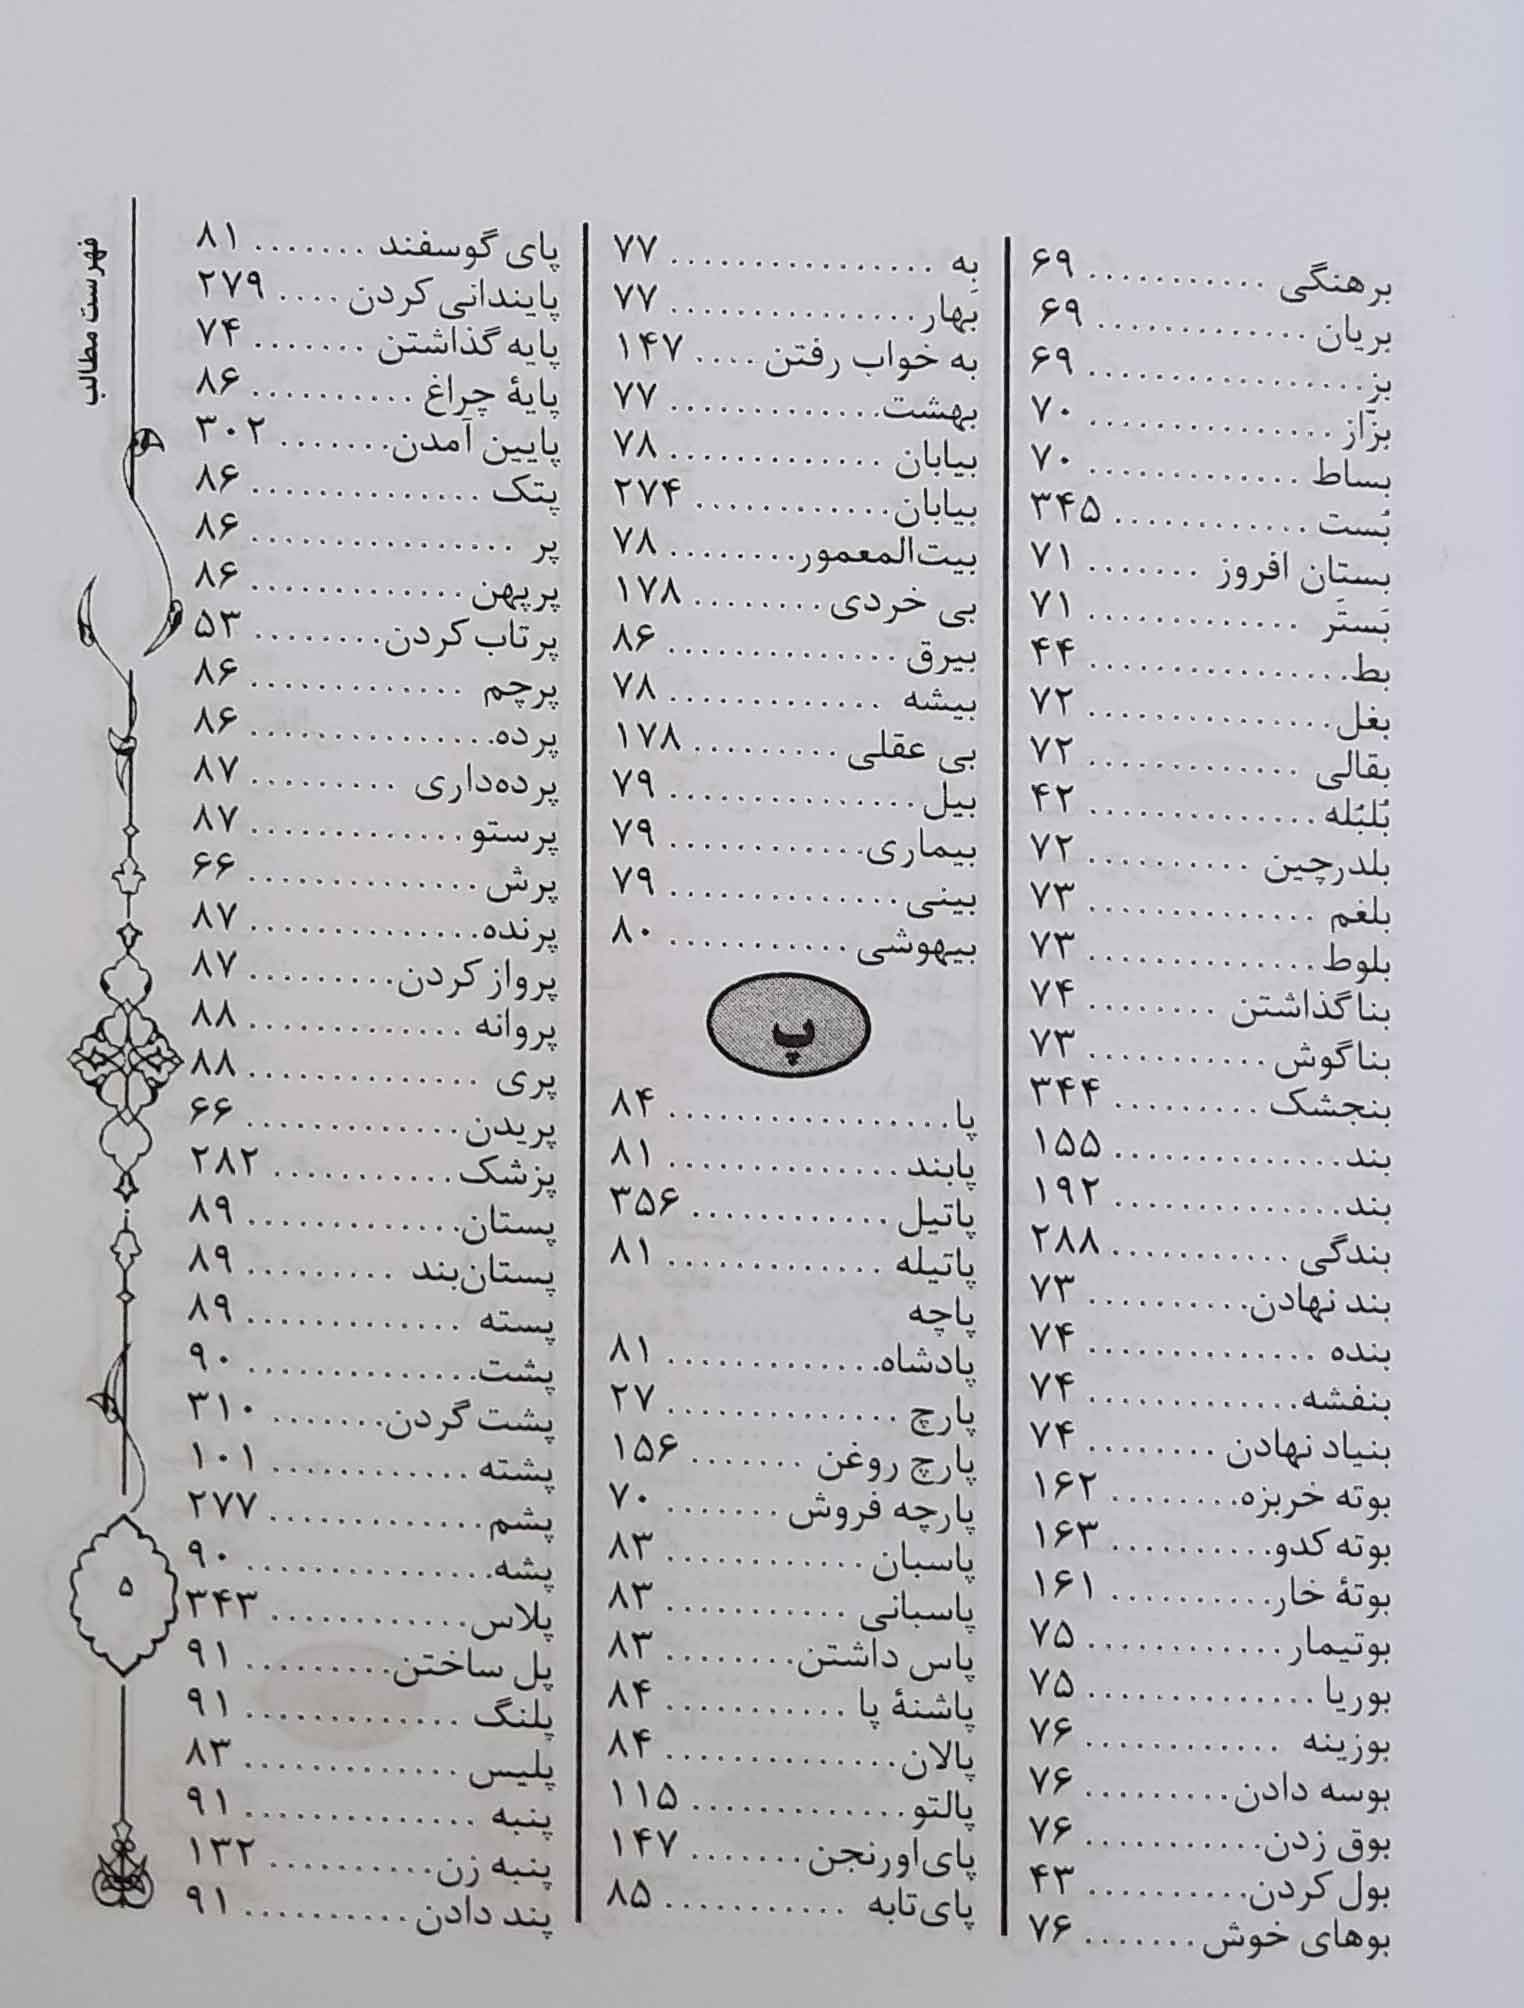 برهنگی ........... ۶۹
بریان ............. ۶۹
بز ................. ۶۹
بزّاز ............... ۷۰
بساط ............. ۷۰
بُست ............ ۳۴۵
بستان افروز ....... ۷۱
بَستَر ............. ۷۱
بط ................ ۴۴
بغل ............... ۷۲
بقالی ............. ۷۲
بُلبُله .............. ۴۲
بلدرچین .......... ۷۲
بلغم .............. ۷۳
بلوط .............. ۷۳
بناگذاشتن ........ ۷۴
بناگوش ........... ۷۳
بنجشک ......... ۳۴۴
بند .............. ۱۵۵
بند .............. ۱۹۲
بندگی ........... ۲۸۸
بند نهادن .......... ۷۳
بنده .............. ۷۴
بنفشه ............. ۷۴
بنیاد نهادن ........ ۷۴
بوته خربزه ........ ۱۶۲
بوته کدو .......... ۱۶۳
بوتهٔ خار .......... ۱۶۱
بوتیمار ............ ۷۵
بوریا .............. ۷۵
بوزینه ............ ۷۶
بوسه دادن ......... ۷۶
بوق زدن ........... ۷۶
بول کردن .......... ۴۳
بوهای خوش ....... ۷۶
بِه ................ ۷۷
بَهار ............... ۷۷
به خواب رفتن .... ۱۴۷
بهشت ............. ۷۷
بیابان ............. ۷۸
بیابان ............ ۲۷۴
بیت‌المعمور ........ ۷۸
بی خردی ........ ۱۷۸
بیرق .............. ۸۶
بیشه ............. ۷۸
بی عقلی ......... ۱۷۸
بیل ............... ۷۹
بیماری ............ ۷۹
بینی .............. ۷۹
بیهوشی ........... ۸۰
پ
پا ................. ۸۴
پابند .............. ۸۱
پاتیل ............ ۳۵۶
پاتیله ............. ۸۱
پاچه
پادشاه ............. ۸۱
پارچ .............. ۲۷
پارچ روغن ....... ۱۵۶
پارچه فروش ....... ۷۰
پاسبان ............ ۸۳
پاسبانی ........... ۸۳
پاس داشتن ........ ۸۳
پاشنهٔ پا ........... ۸۴
پالان .............. ۸۴
پالتو ............. ۱۱۵
پای‌اورنجن ....... ۱۴۷
پای‌تابه ........... ۸۵
پای گوسفند ....... ۸۱
پایندانی کردن .... ۲۷۹
پایه گذاشتن ....... ۷۴
پایهٔ چراغ .......... ۸۶
پایین آمدن ....... ۳۰۲
پتک .............. ۸۶
پر ................ ۸۶
پرپهن ............. ۸۶
پرتاب کردن ........ ۵۳
پرچم ............. ۸۶
پرده ............... ۸۶
پرده‌داری ......... ۸۷
پرستو ............. ۸۷
پرش .............. ۶۶
پرنده .............. ۸۷
پرواز کردن ......... ۸۷
پروانه ............. ۸۸
پری .............. ۸۸
پریدن ............. ۶۶
پزشک ........... ۲۸۲
پستان ............. ۸۹
پستان‌بند ......... ۸۹
پسته ............. ۸۹
پشت .............. ۹۰
پشت گردن ....... ۳۱۰
پشته ............ ۱۰۱
پشم ............. ۲۷۷
پشه ............... ۹۰
پلاس ............ ۳۴۳
پل ساختن ......... ۹۱
پلنگ ............. ۹۱
پلیس ............. ۸۳
پنبه .............. ۹۱
پنبه زن .......... ۱۳۲
پند دادن .......... ۹۱
فهرست مطالب
۵